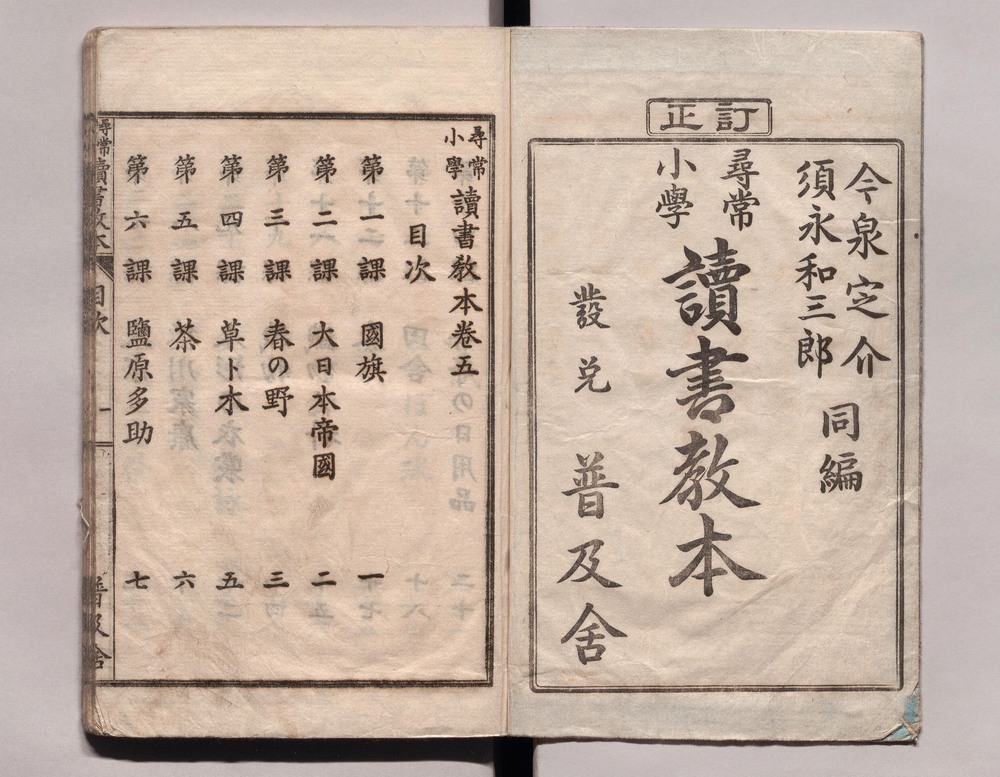 訂正
今泉定介
須永和三郎
同編
尋常
小學
讀書教本
發兌
普及舍
尋常
小學
讀書教本卷五
目次
第一課 國旗 一
第二課 大日本帝國 二
第三課 春の野 三
第四課 草ト木 五
第五課 茶 六
第六課 鹽原多助 七
尋常讀書教本
目次
一
普及舍